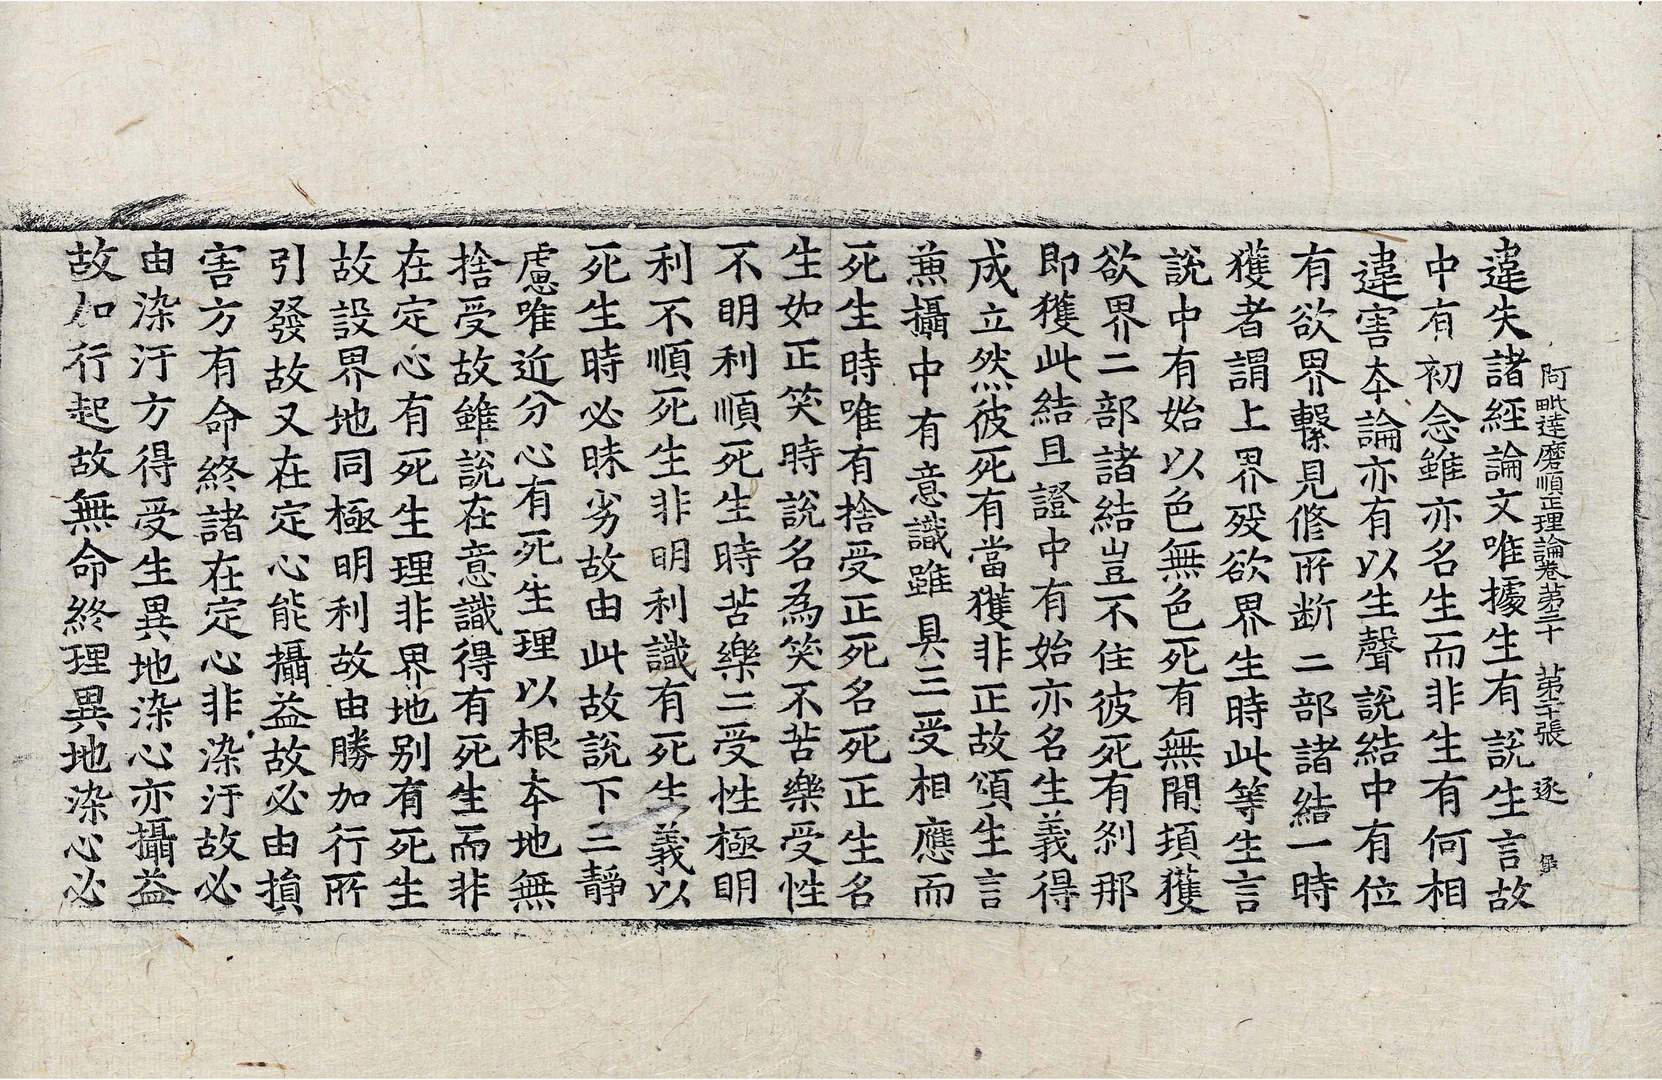 阿毗達磨順正理論卷第三十 第二十張 逐
違失諸經論文唯據生有說生言故
中有初念雖亦名生而非生有何相
違害本論亦有以生聲說結中有位
有欲界繫見修所断二部諸結一時
獲者謂上界歿欲界生時此等生言
說中有始以色無色死有無閒頃獲
欲界二部諸結豈不住彼死有剎那
即獲此結且證中有始亦名生義得
成立然彼死有當獲非正故頌生言
兼攝中有意識雖具三受相應而
死生時唯有捨受正死名死正生名
生如正笑時說名為笑不苦樂受性
不明利順死生時苦樂二受性極明
利不順死生非明利識有死生義以
死生時必昧劣故由此故說下三靜
慮唯近分心有死生理以根本地無
捨受故雖說在意識得有死生而非
在定心有死生理非界地別有死生
故設界地同極明利故由勝加行所
引發故又在定心能攝益故必由損
害方有命終諸在定心非染汙故必
由染汙方得受生異地染心亦攝益
故加行起故無命終理異地染心必